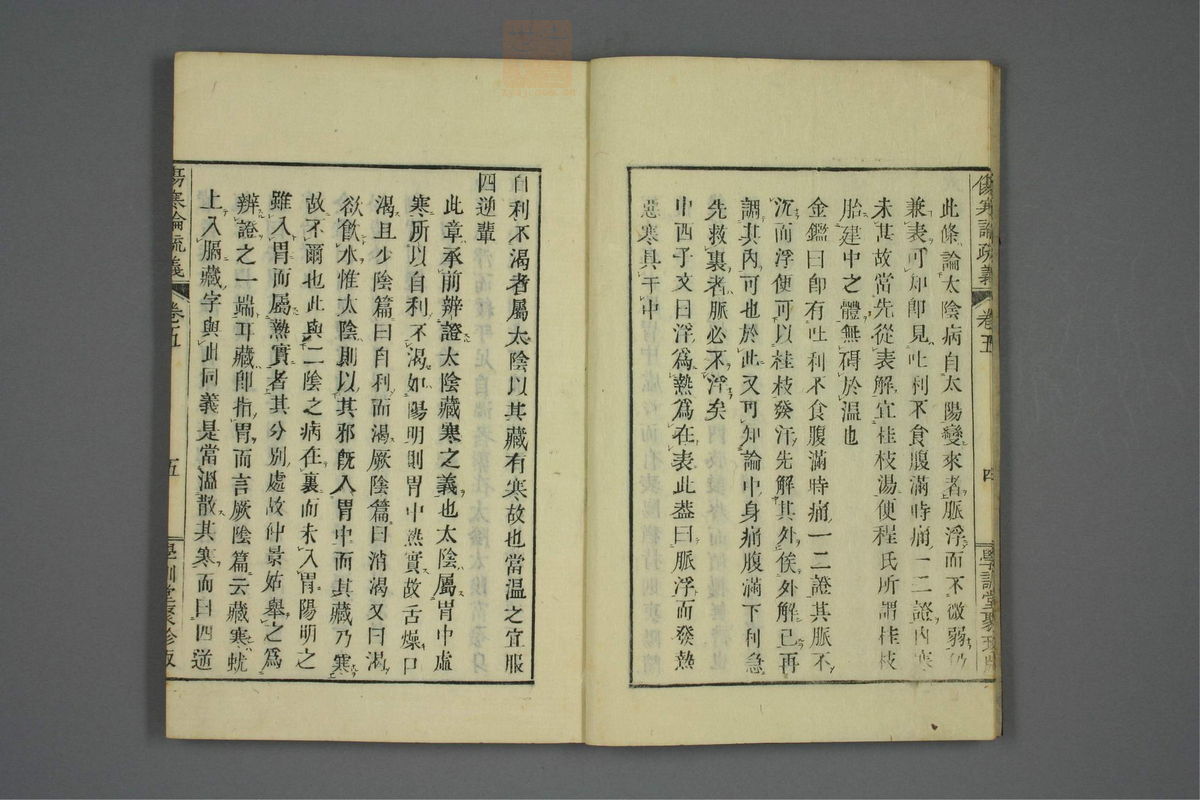 傷寒論疏義 卷五 四 學訓堂聚珍版
此條論太陰病自太陽變來者脈浮而不微弱仍
兼表可知卽見吐利不食腹滿時痛一二證內寒
未甚故當先從表解宜桂枝湯便程氏所謂桂枝
胎建中之體無碍於温也
金鑑曰卽有吐利不食腹滿時痛一二證其脈不
沉而浮便可以桂枝發汗先解其外俟外解已再
調其內可也於此又可知論中身痛腹滿下利急
先救裏者脈必不浮矣
中西子文曰浮爲熱爲在表此葢曰脈浮而發熱
惡寒具于中
自利不渴者屬太陰以其藏有寒故也當温之宜服
四逆輩
此章承前辨證太陰藏寒之義也太陰屬胃中虛
寒所以自利不渴如陽明則胃中熱實故舌燥口
渴且少陰篇曰自利而渴厥陰篇曰消渴又曰渴
欲飲水惟太陰則以其邪旣入胃中而其藏乃寒
故不爾也此與二陰之病在裏而未入胃陽明之
雖入胃而屬熱實者其分別處故仲景姑舉之爲
辨證之一端耳藏卽指胃而言厥陰篇云藏寒蚘
上入膈藏字與此同義是當溫散其寒而曰四逆
傷寒論疏義 卷五 五 學訓堂聚珍版